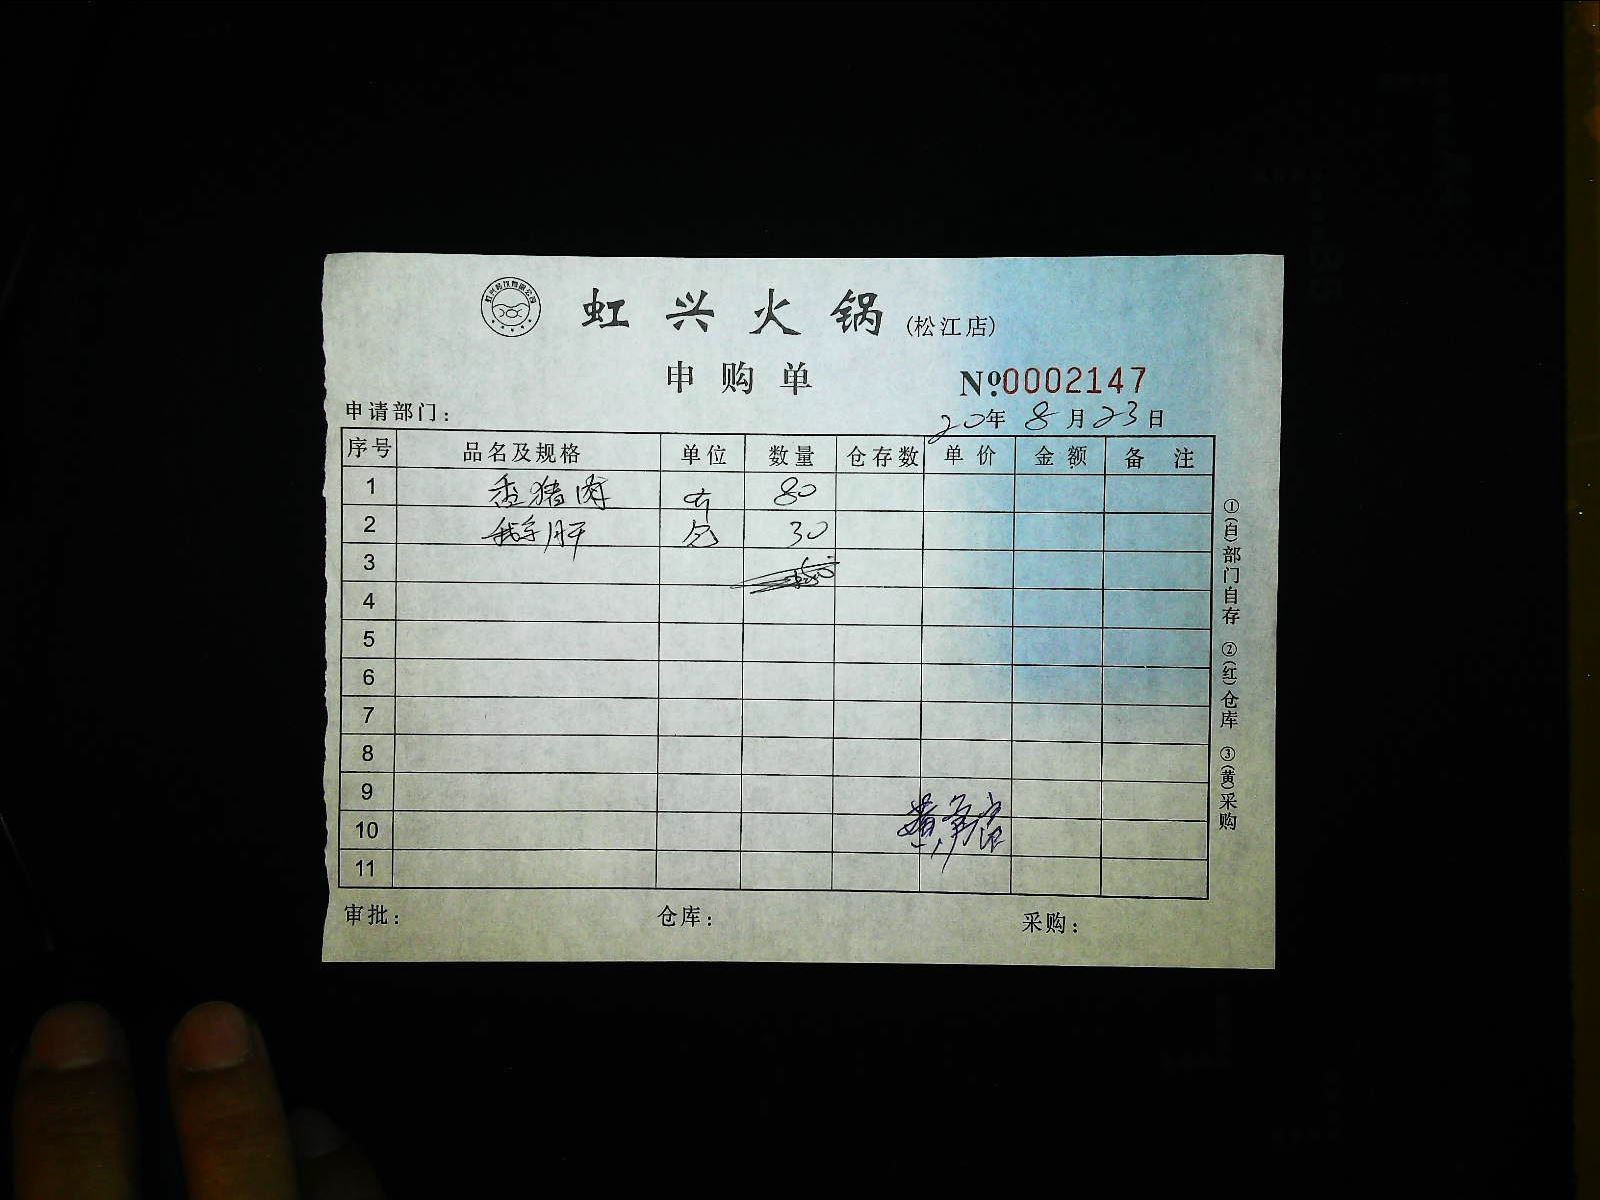 虹兴火锅(松江店)
申购单 №0002147
申请部门: 20年8月23日
序号 品名及规格 单位 数量 仓存数 单价 金额 备注
1 香猪肉 80
2 鹅肝 包 30
3
4
5
6
7
8
9
10
11
审批: 仓库: 采购:
①(白)部门自存 ②(红)仓库 ③(黄)采购